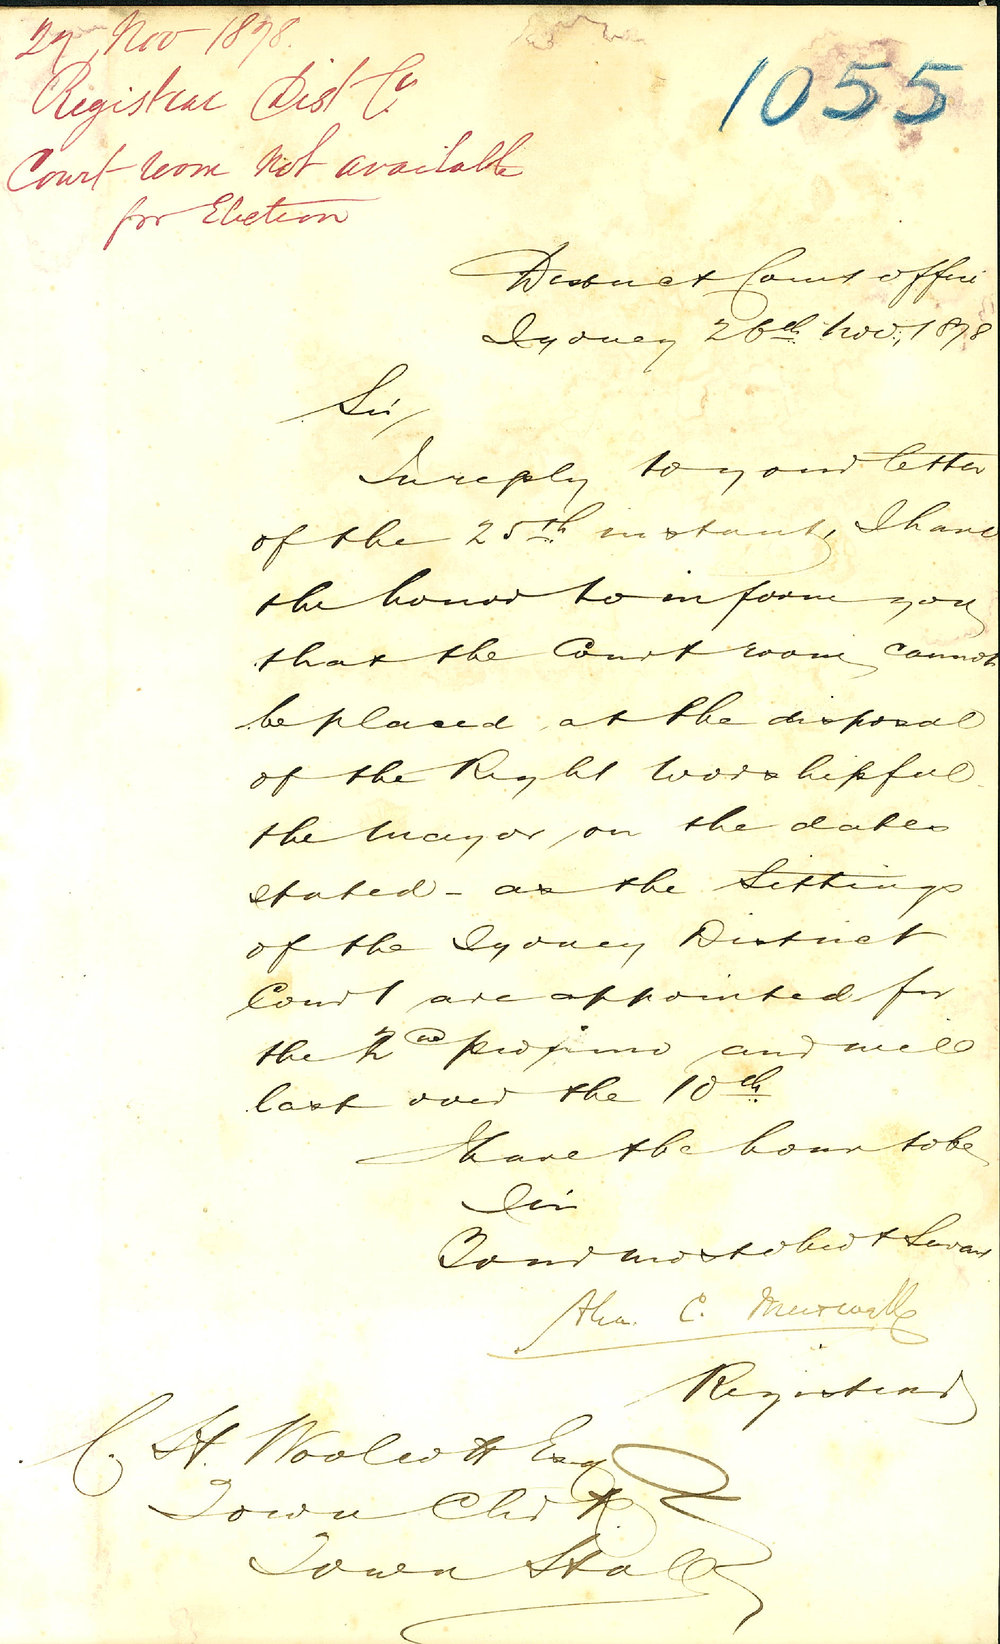 27 Nov 1878.
Registrar Dist Ct.
Court room not available
for Election
1055
District Court Office
Sydney 26th Nov., 1878
Sir,
In reply to your letter
of the 25th instant, I have
the honor to inform you
that the Court room cannot
be placed at the disposal
of the Right Worshipful
the Mayor on the dates
stated - as the Sittings
of the Sydney District
Court are appointed for
the 2nd proximo and will
last over the 10th.
I have the honor to be
Sir
Your most obedt Servant
C. Maxwell
Registrar
C. H. Woolcott Esq
Town Clerk
Town Hall